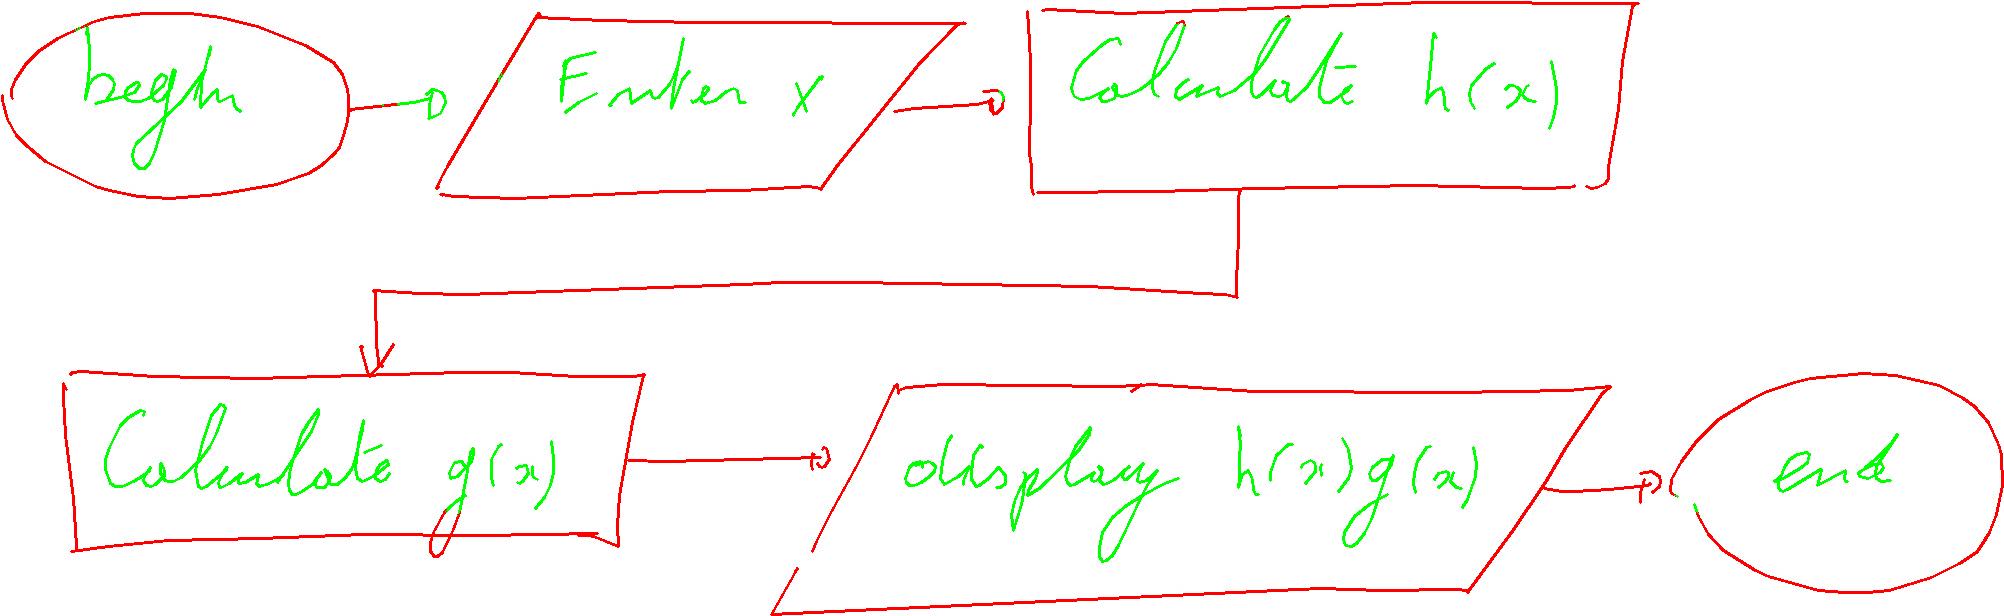 begin
Enter x
Calculate h(x)
Calculate g(x)
display h(x)g(x)
end